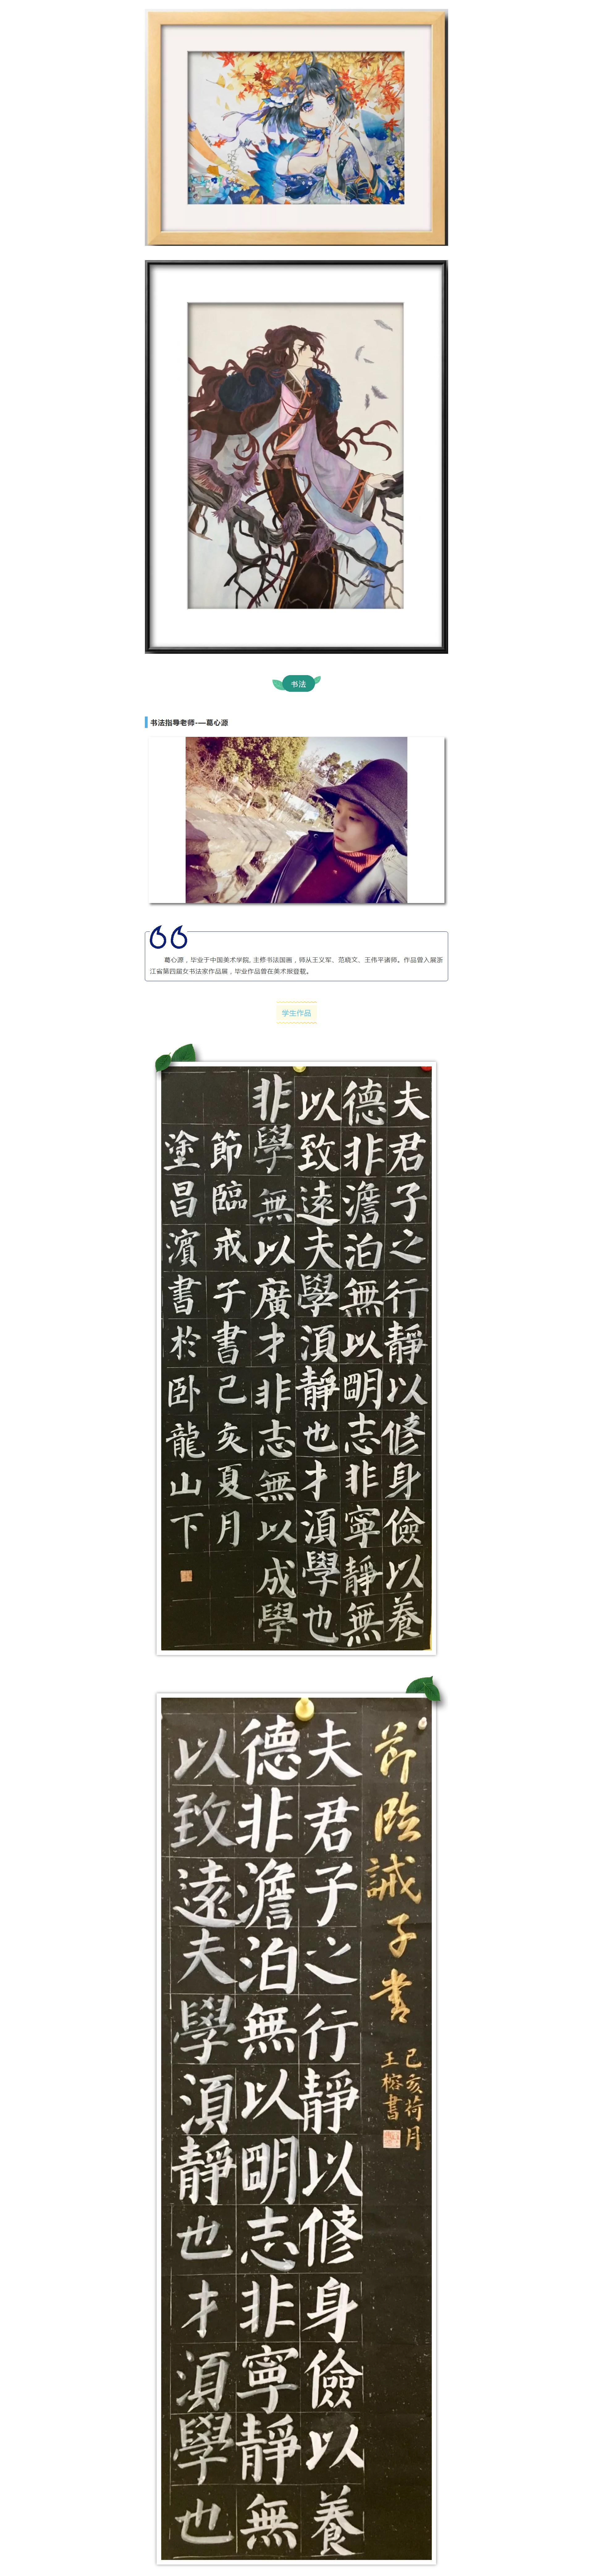 书法
书法指导老师-—葛心源
葛心源，毕业于中国美术学院, 主修书法国画，师从王义军、范晓文、王伟平诸师。作品曾入展浙
江省第四届女书法家作品展，毕业作品曾在美术报登载。
学生作品
夫君子之行靜以修身儉以養
德非澹泊無以明志非寧靜無
以致遠夫學須靜也才須學也
非學無以廣才非志無以成學
節臨戒子書己亥夏月
塗昌濱書於卧龍山下
节临誡子書
己亥荷月
王榕書
夫君子之行靜以修身儉以養
德非澹泊無以明志非寧靜無
以致遠夫學須靜也才須學也